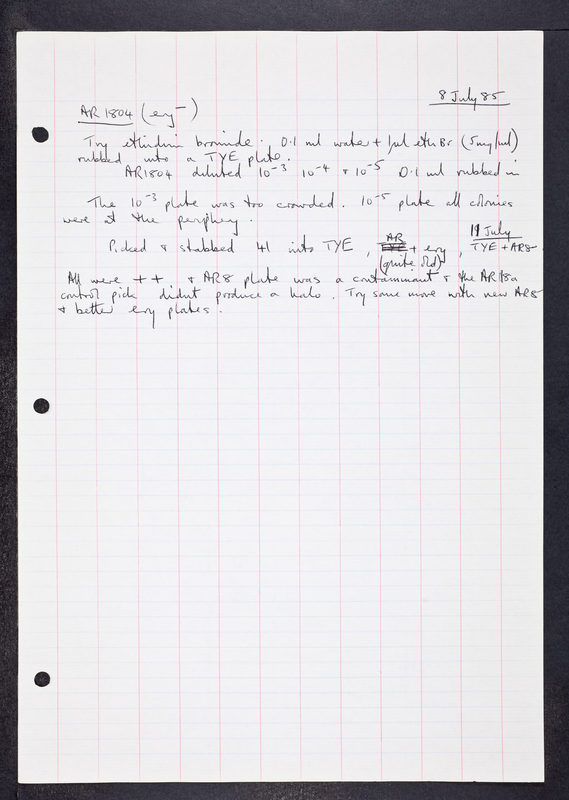 8 July 85
AR1804 (ery⁻)
Try ethidium bromide. 0.1 ml water + 1µl eth Br (5mg/ml)
rubbed into a TYE plate.
AR1804 diluted 10⁻³ 10⁻⁴ & 10⁻⁵ 0.1 ml rubbed in
The 10⁻³ plate was too crowded. 10⁻⁵ plate all colonies
were at the periphery.
11 July
Picked & stabbed 41 into TYE, AR + ery, TYE + AR8.
(quite old)
All were ++, & AR8 plate was a contaminant & the AR18a
control pick didnt produce a halo. Try some more with new AR8
& better ery plates.